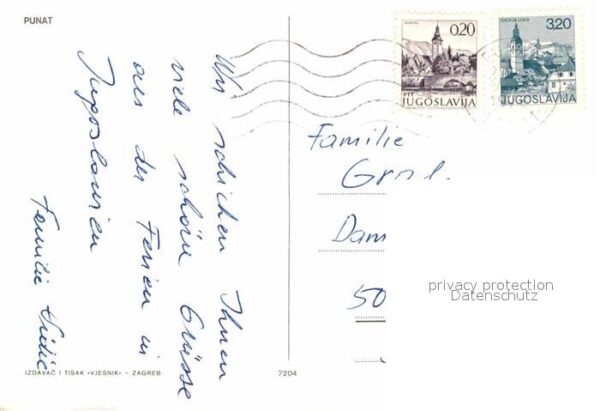 PUNAT
Wir schicken Ihnen
viele schöne Grüsse
aus der Ferien in
Jugoslawien
Familie
BLED
0,20
PTT
JUGOSLAVIJA
ŠKOFJA LOKA
3,20
JUGOSLAVIJA
Familie
Dam
50
privacy protection
Datenschutz
IZDAVAČ I TISAK «VJESNIK» - ZAGREB
7204